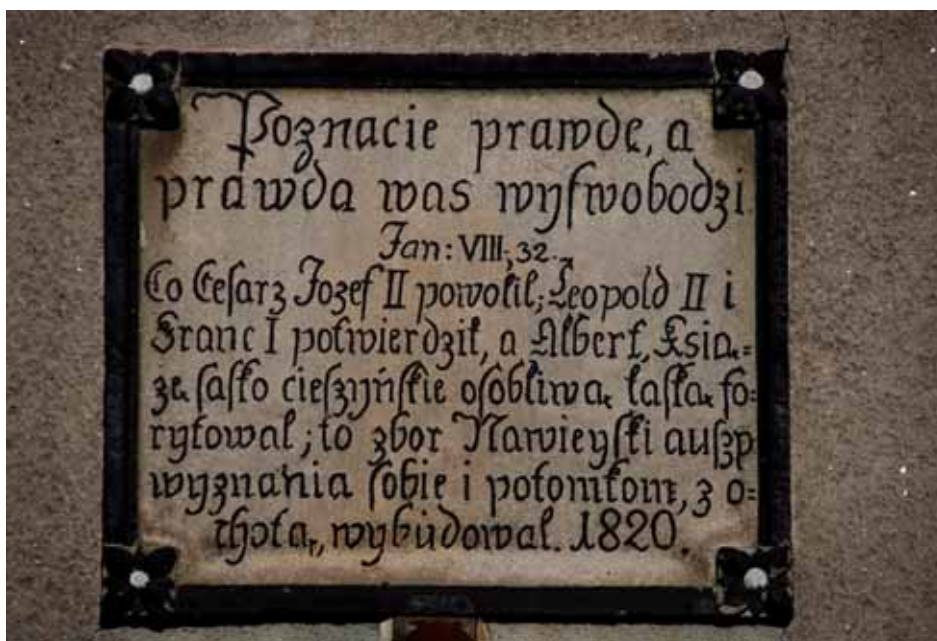 Poznacie prawdę, a
prawda was wyſwobodzi
Jan: VIII, 32.
Co Ceſarz Jozef II powolil; Leopold II i
Franc I potwierdził, a Albert, Xsią-
żę ſaſko cieſzyńſkie oſobliwą łaſką fo-
rytował; to zbor Nawieyſki auſzp
wyznania ſobie i potomkom, z o-
chotą, wybudował. 1820.